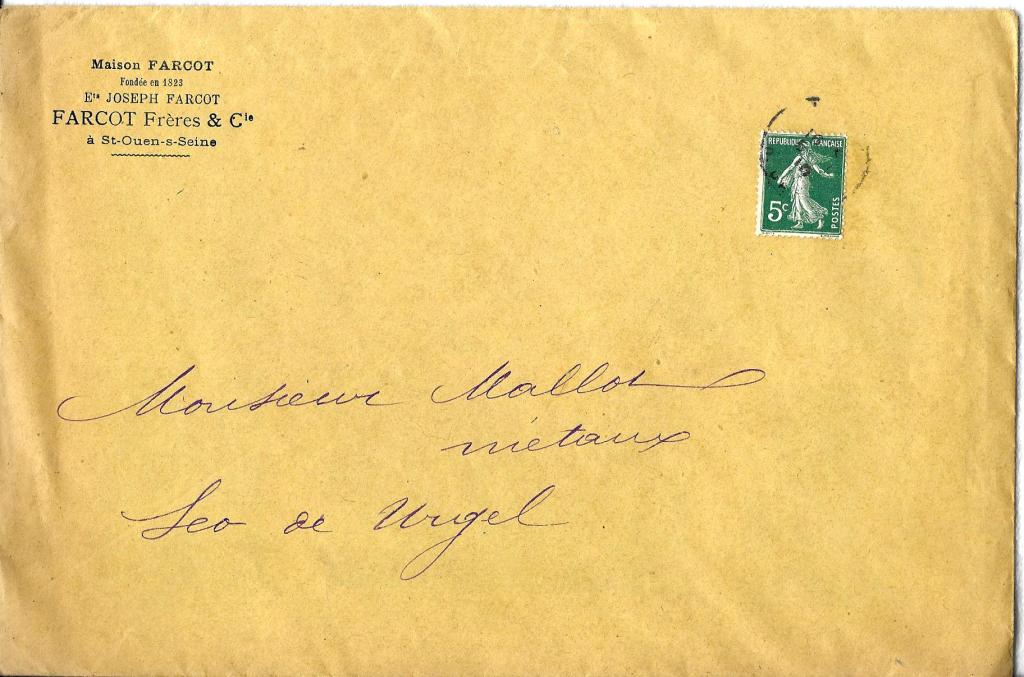 Maison FARCOT
Fondée en 1823
Ets JOSEPH FARCOT
FARCOT Frères & Cie
à St-Ouen-s-Seine
REPUBLIQUE FRANÇAISE
5c
POSTES
Monsieur Mallol
métaux
Seo de Urgel